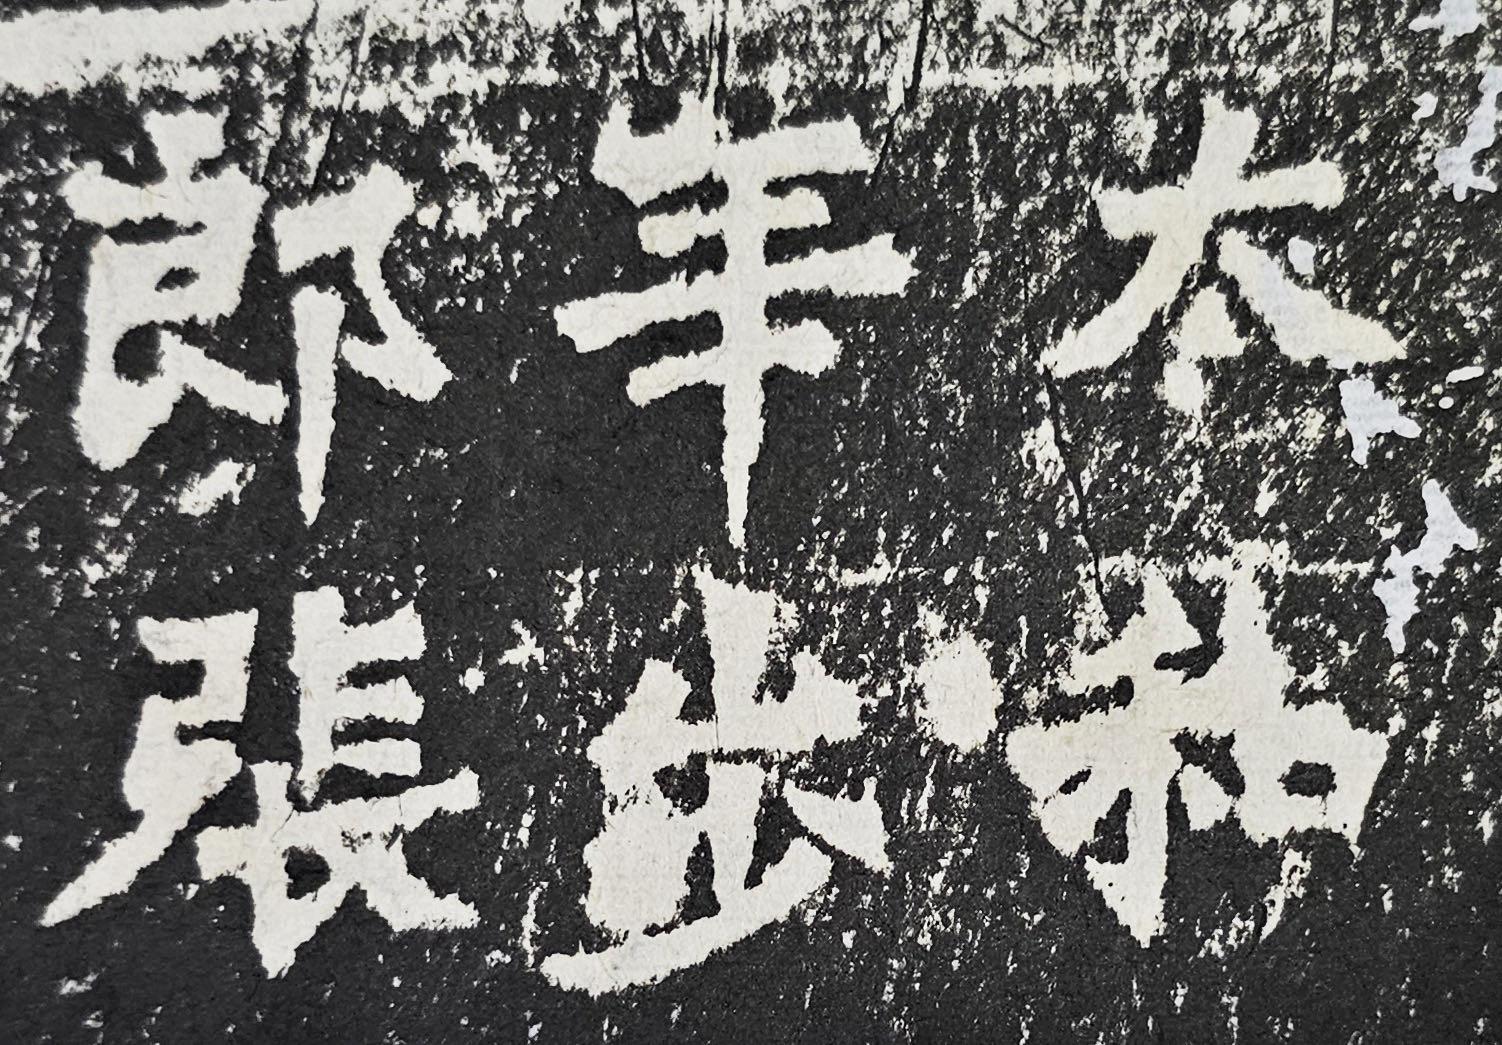 太和
年步
郎張